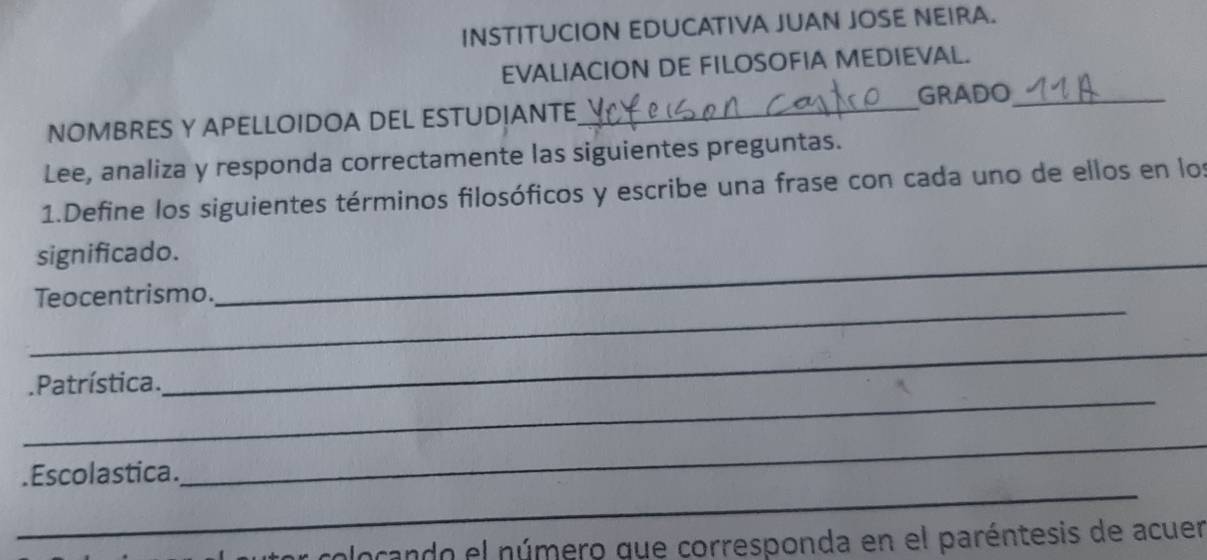 INSTITUCION EDUCATIVA JUAN JOSE NEIRA.
EVALIACION DE FILOSOFIA MEDIEVAL.
NOMBRES Y APELLOIDOA DEL ESTUDIANTE Yeferson Castro GRADO 11A
Lee, analiza y responda correctamente las siguientes preguntas.
1.Define los siguientes términos filosóficos y escribe una frase con cada uno de ellos en los
significado.
Teocentrismo.
.Patrística.
.Escolastica.
colocando el número que corresponda en el paréntesis de acuer